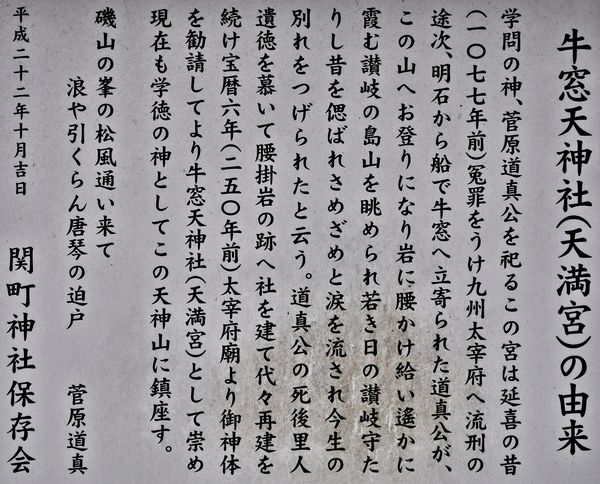 牛窓天神社(天満宮)の由来
学問の神、菅原道真公を祀るこの宮は延喜の昔
(一〇七七年前)冤罪をうけ九州太宰府へ流刑の
途次、明石から船で牛窓へ立寄られた道真公が、
この山へお登りになり岩に腰かけ給い遙かに
霞む讃岐の島山を眺められ若き日の讃岐守た
りし昔を偲ばれさめざめと涙を流され今生の
別れをつげられたと云う。道真公の死後里人
遺徳を慕いて腰掛岩の跡へ社を建て代々再建を
続け宝暦六年(二五〇年前)太宰府廟より御神体
を勧請してより牛窓天神社(天満宮)として崇め
現在も学徳の神としてこの天神山に鎮座す。
磯山の峯の松風通い来て
浪や引くらん唐琴の迫戸 菅原道真
平成二十二年十月吉日 関町神社保存会